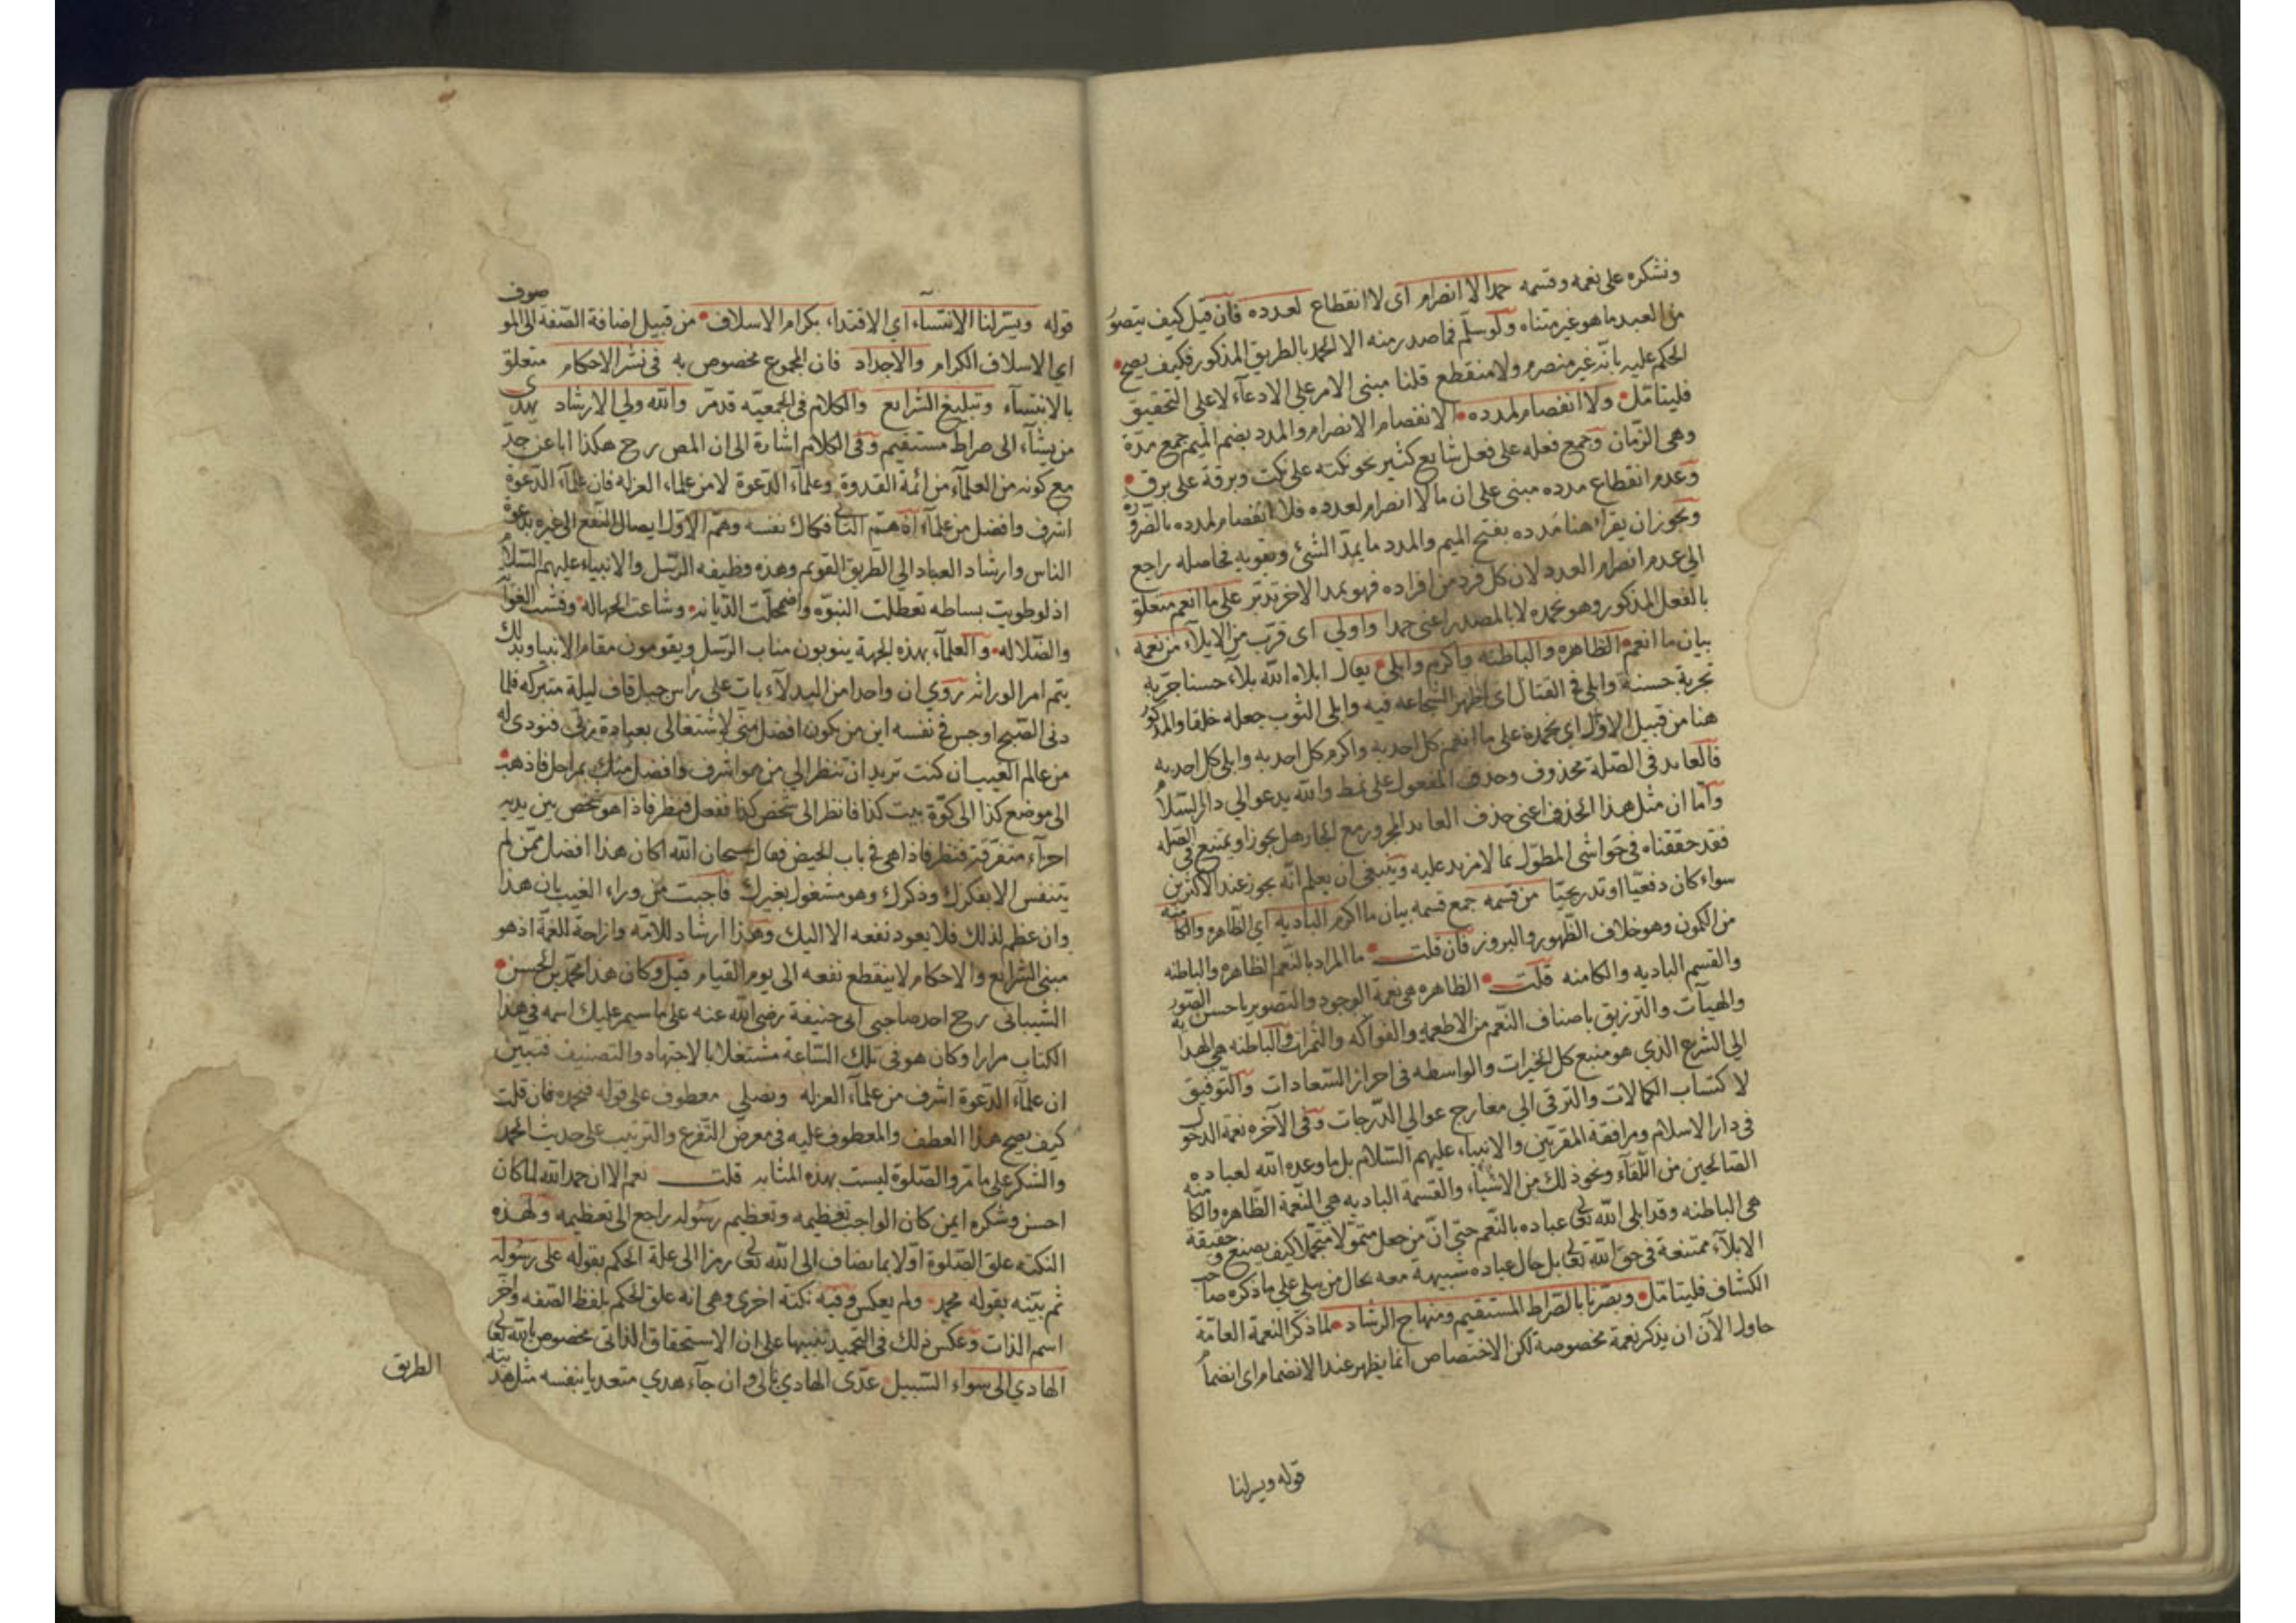 ونشكره على نعمه وقسمه حمدا لا انصرام اى لا انقطاع لعدده فان قيل كيف يتصور
من العبد ما هو غير متناه ولو سلم فما صدر منه الا الحمد بالطريق المذكور فكيف يصح
الحكم عليه بانه غير منصرم ولا منقطع قلنا مبنى الامر على الادعاء لا على التحقيق
فليتامل ولا انفصام لمدده الانفصام الانصرام والمدد بضم الميم جمع مدة
وهى الزمان وجمع فعله على فعل شايع كثير نحو نكته على نكت وبرقة على برق
وعدم انقطاع مدده مبنى على ان ما لا انصرام لعدده فلا انفصام لمدده بالضرورة
ويجوز ان يقراء هنا مدده بفتح الميم والمدد ما يمد الشئ ويقويه فحاصله راجع
الى عدم انصرام العدد لان كل فرد من افراده فهو يمد الاخر تدبر على ما انعم متعلق
بالفعل المذكور وهو نحمده لا بالمصدر اعنى حمدا واولى اى قرب من الايلاء من نعمه
بيان ما انعم الظاهره والباطنه واكرم وابلى يقال ابلاه الله بلاء حسنا جربه
تجربة حسنة وابلى فى القتال اى اظهر الشجاعه فيه وابلى الثوب جعله خلقا والمذكور
هنا من قبيل الاول اى نحمده على ما انعم كل احد به واكرم كل احد به وابلى كل احد به
فالعايد فى الصلة محذوف وحذف المفعول على نمط والله يدعو الى دار السلام
واما ان مثل هذا الحذف اعنى حذف العايد المجرور مع الجار هل يجوز او يمتنع فى الصله
فقد حققناه فى حواشى المطول بما لا مزيد عليه وينبغى ان يعلم انه يجوز عند الاكثرين
سواء كان دفعيا او تدريجيا من قسمه جمع قسمه بيان ما اكرم الباديه اى الظاهره والكامنه
من الكمون وهو خلاف الظهور والبروز فان قلت ما المراد بالنعم الظاهره والباطنه
والقسم الباديه والكامنه قلت الظاهره هى نعمة الوجود والتصوير باحسن الصور
والهيآت والترزيق باصناف النعم من الاطعمه والفواكه والثمرات والباطنه هى الهدايه
الى الشرع الذى هو منبع كل الخيرات والواسطه فى احراز السعادات والتوفيق
لاكتساب الكمالات والترقى الى معارج عوالى الدرجات وفى الآخره نعمة الدخول
فى دار الاسلام ومرافقة المقربين والانبياء عليهم السلام بل ما وعده الله لعباده
الصالحين من اللقاء ونحو ذلك من الاشياء والقسمة الباديه هى النعمة الظاهره والكامنه
هى الباطنه وقد ابلى الله تعالى عباده بالنعم حتى ان من جعل متمولا متجملا كيف يصنع وحقيقة
الابلاء ممتنعة فى حق الله تعالى بل حال عباده شبيهة معه بحال من يبلى على ما ذكره صاحب
الكشاف فليتامل وبصرنا بالصراط المستقيم ومنهاج الرشاد لما ذكر النعمة العامة
حاول الآن ان يذكر نعمة مخصوصة لكن الاختصاص انما يظهر عند الانضمام اى انضمام
قوله ويسر لنا
قوله ويسر لنا الائتساء اي الاقتداء بكرام الاسلاف من قبيل اضافة الصفة الى الموصوف
اي الاسلاف الكرام والاجداد فان المجموع مخصوص به فى نشر الاحكام متعلق
بالائتساء وتبليغ الشرايع والكلام فى الجمعية قد مر والله ولى الارشاد يهدى
من يشاء الى صراط مستقيم وفى الكلام اشارة الى ان المص رح هكذا ابا عن جد
مع كونه من العلماء من ائمة القدوة وعلماء الدعوة لا من علماء العزله فان علماء الدعوة
اشرف وافضل من علماء اذ هم الثانى فكاك نفسه وهم الاول ايصال النفع الى غيره بدعوة
الناس وارشاد العباد الى الطريق القويم وهذه وظيفه الرسل والانبياء عليهم السلام
اذ لو طويت بساطه تعطلت النبوه واضمحلت الديانه وشاعت الجهاله وفشت الغوآ
والضلاله والعلماء بهذه الجهة ينوبون مناب الرسل ويقومون مقام الانبيا وبذلك
يتم امر الوراثه روى ان واحدا من البدلاء بات على رأس جبل قاف ليلة متبركه فلما
دنى الصبح اوجس فى نفسه اين من يكون افضل منى لاشتغالى بعبادة ربى فنودى له
من عالم الغيب ان كنت تريد ان تنظر الى من هو اشرف وافضل منك بمراحل فاذهب
الى موضع كذا الى كوة بيت كذا فانظر الى شخص كذا ففعل فنظر فاذا هو شخص بين يديه
اجزاء متفرقة فنظر فاذا هى فى باب الحيض فقال سبحان الله اكان هذا افضل ممن لم
يتنفس الا بفكرك وذكرك وهو مشغول بغيرك فاجيبت من وراء الغيب بان هذا
وان عظم لذلك فلا يعود نفعه الا اليك وهذا ارشاد للامه وازاحة للغمة اذ هو
مبنى الشرايع والاحكام لا ينقطع نفعه الى يوم القيام قيل وكان هذا محمد بن الحسن
الشيبانى رح احد صاحبى ابى حنيفة رضى الله عنه على ما سيمر عليك اسمه فى هذا
الكتاب مرارا وكان هو فى تلك الساعة مشتغلا بالاجتهاد والتصنيف فتبين
ان علماء الدعوة اشرف من علماء العزله ونصلى معطوف على قوله فنحمده فان قلت
كيف يصح هذا العطف والمعطوف عليه فى معرض التفرع والترتيب على حديث الحمد
والشكر على ما مر والصلوة ليست بهذه المثابه قلت نعم الا ان حمد الله لما كان
احسن وشكره ايمن كان الواجب تعظيمه وتعظيم رسوله راجع الى تعظيمه ولهذه
النكته علق الصلوة اولا بما يضاف الى الله تعالى رمزا الى علة الحكم بقوله على رسوله
ثم بينه بقوله محمد ولم يعكس وفيه نكتة اخرى وهى انه علق الحكم بلفظ الصفه واخر
اسم الذات وعكس ذلك فى التحميد تنبيها على ان الاستحقاق الذاتى مخصوص بالله تعالى
الهادى الى سواء السبيل عدى الهادى بالى وان جآء هدى متعديا بنفسه مثل هديته
الطريق